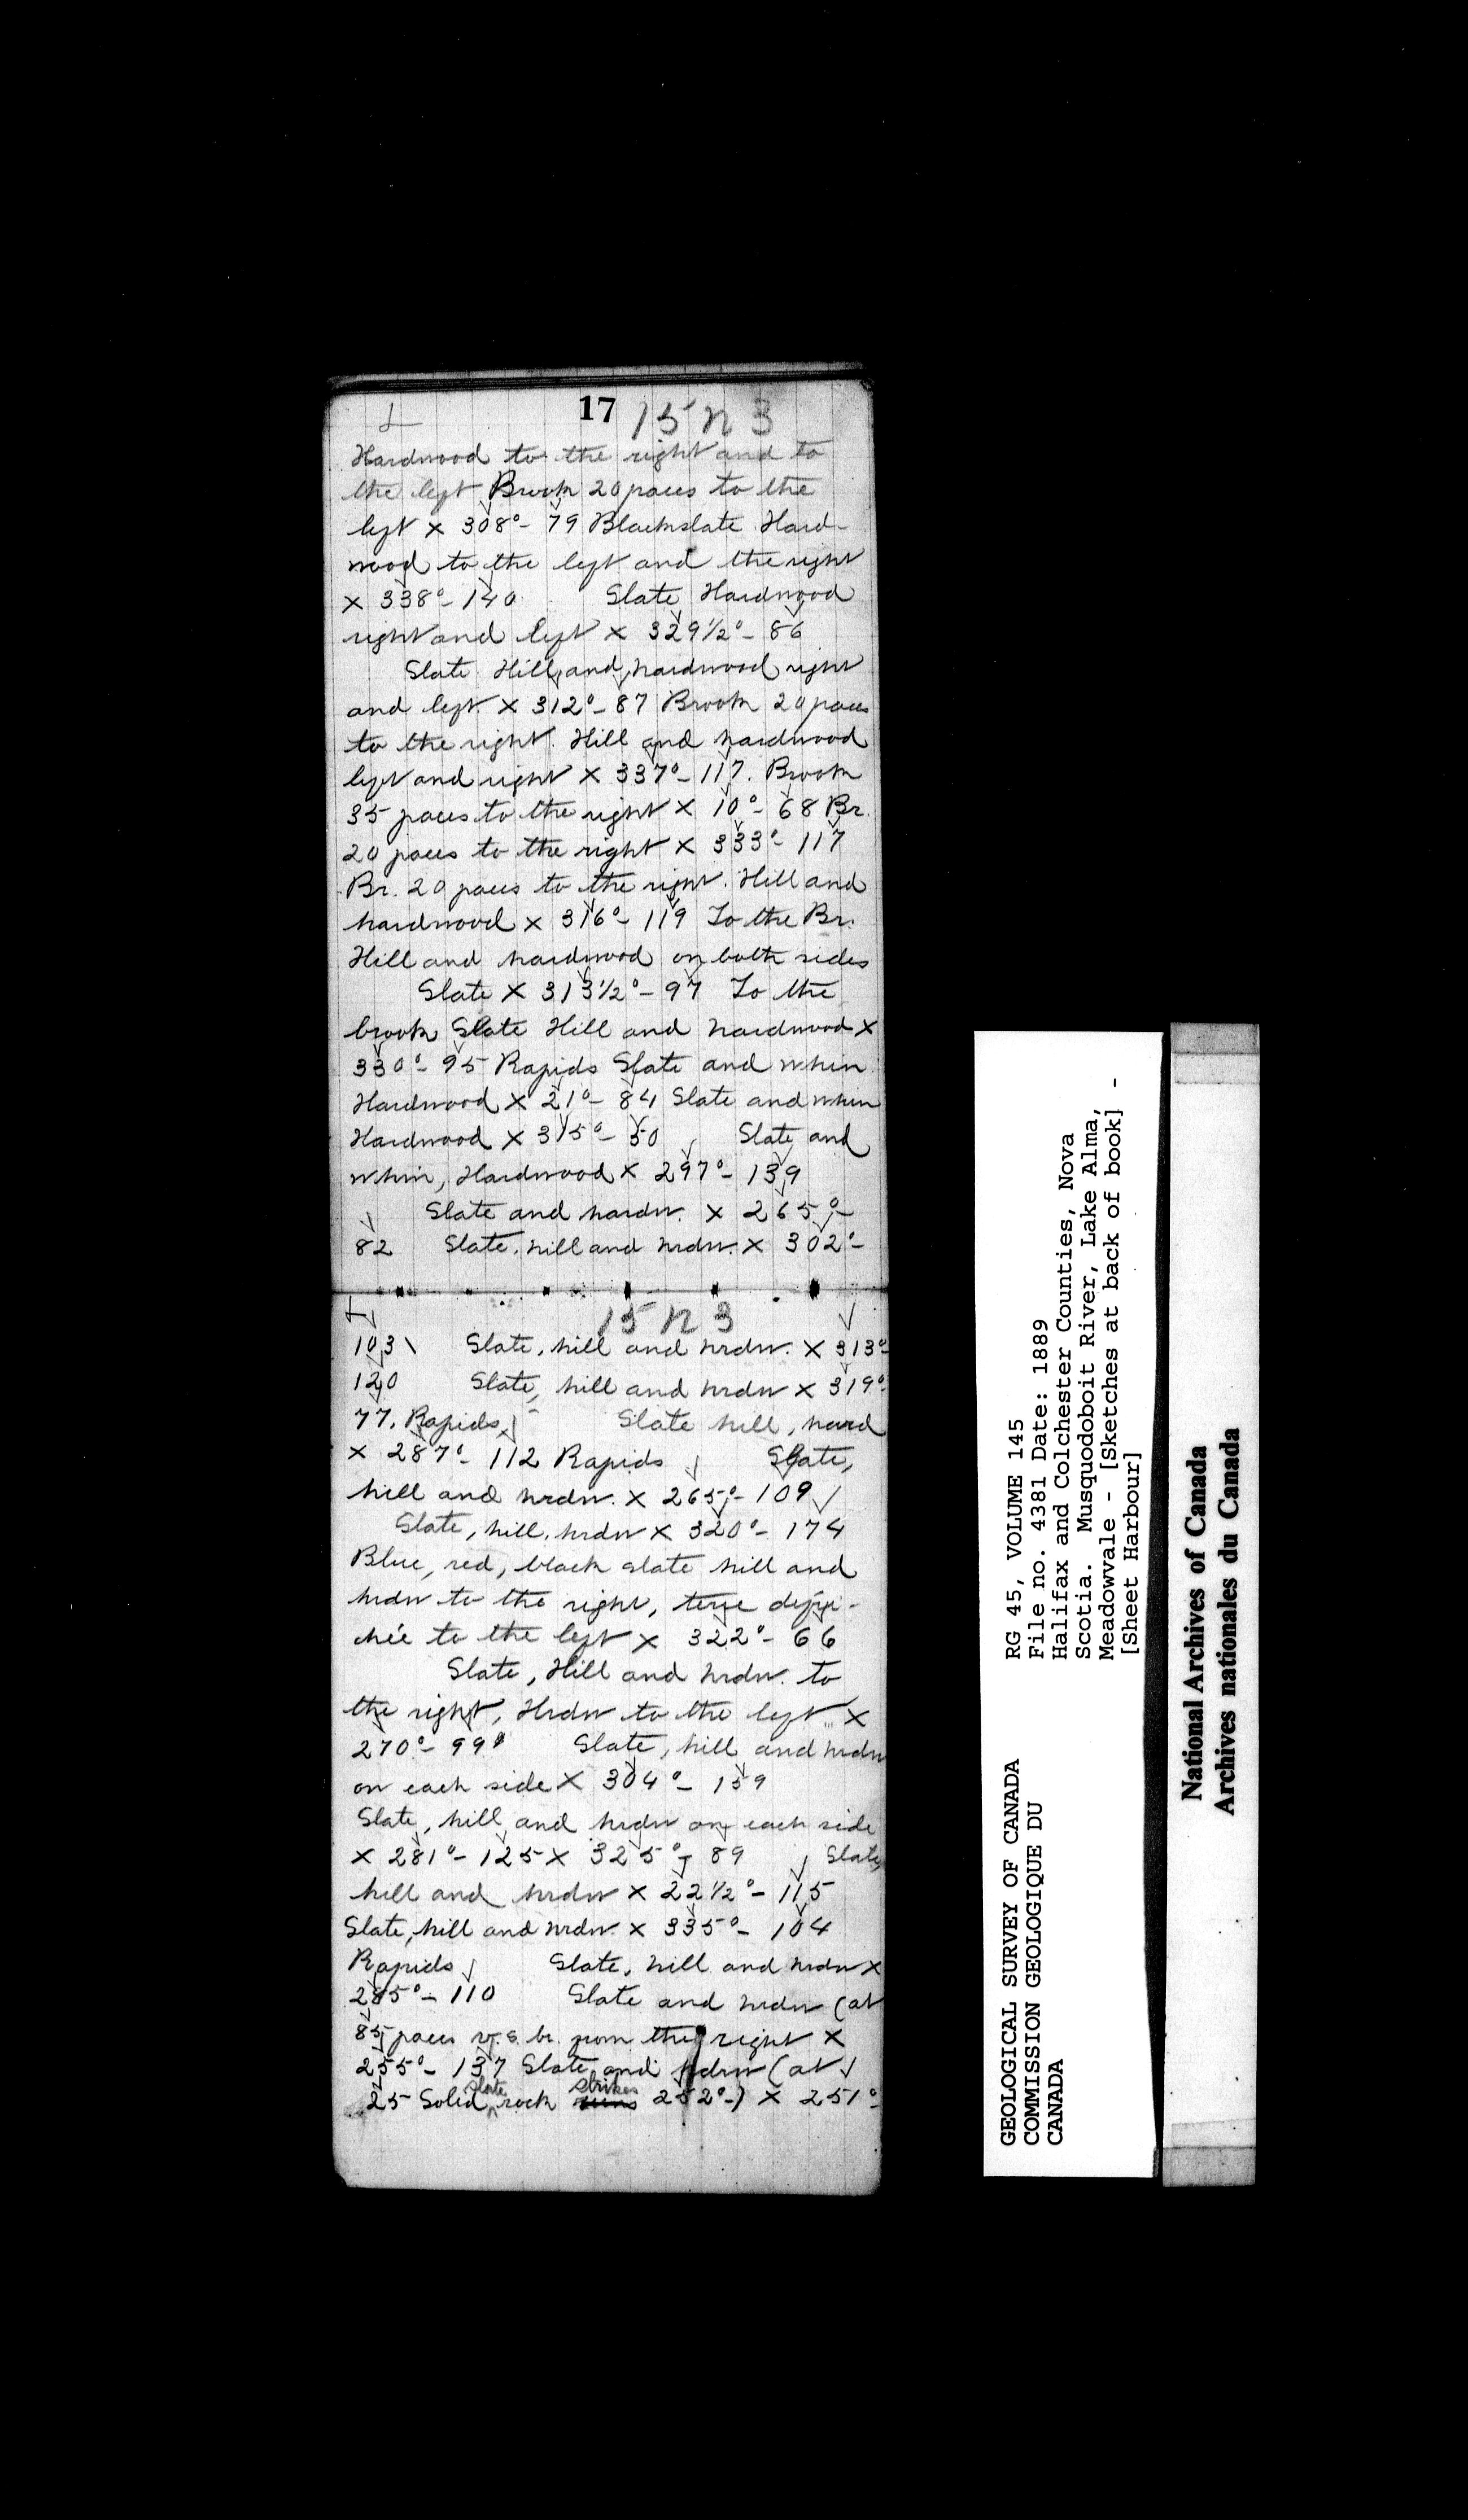 17 15 n 3
Hardwood to the right and to
the left Brook 20 paces to the
left x 308°- 79 Blackslate Hard-
wood to the left and the right
x 338°- 140 Slate Hardwood
right and left x 329 1/2°- 86
Slate Hill and hardwood right
and left. x 312°- 87 Brook 20 paces
to the right. Hill and hardwood
left and right x 337°- 117. Brook
35 paces to the right x 10°- 68 Br.
20 paces to the right x 333°- 117
Br. 20 paces to the right. Hill and
hardwood x 316°- 119 To the Br.
Hill and hardwood on both sides
Slate x 313 1/2°- 97 To the
brook Slate Hill and hardwood x
330°- 95 Rapids Slate and whin
Hardwood x 21°- 84 Slate and whin
Hardwood x 315°- 50 Slate and
whin, Hardwood x 297°- 139
Slate and hardw. x 265°-
82 Slate, hill and hrdw. x 302°-
15 n 3
103 Slate, hill and hrdw. x 313°-
120 Slate, hill and hrdw x 319°-
77. Rapids Slate hill, hard
x 287°- 112 Rapids Slate,
hill and hrdw. x 265°- 109
Slate, hill, hrdw x 320°- 174
Blue, red, black slate hill and
hrdw to the right, terre défri-
chée to the left x 322°- 66
Slate, Hill and hrdw. to
the right, Hrdw to the left x
270°- 99 Slate, hill and hrdw
on each side x 304°- 159
Slate, hill and hrdw on each side
x 281°- 125 x 325°- 89 Slate
hill and hrdw x 22 1/2°- 115
Slate, hill and hrdw. x 335°- 104
Rapids Slate, hill and hrdw x
285°- 110 Slate and hrdw (at
85 paces v. s. br. from the right x
255°- 137 Slate and hrdw (at
25 Solid slate rock strikes 252°-) x 251°-
GEOLOGICAL SURVEY OF CANADA
COMMISSION GEOLOGIQUE DU
CANADA
RG 45, VOLUME 145
File no. 4381 Date: 1889
Halifax and Colchester Counties, Nova
Scotia. Musquodoboit River, Lake Alma,
Meadowvale - [Sketches at back of book] -
[Sheet Harbour]
National Archives of Canada
Archives nationales du Canada